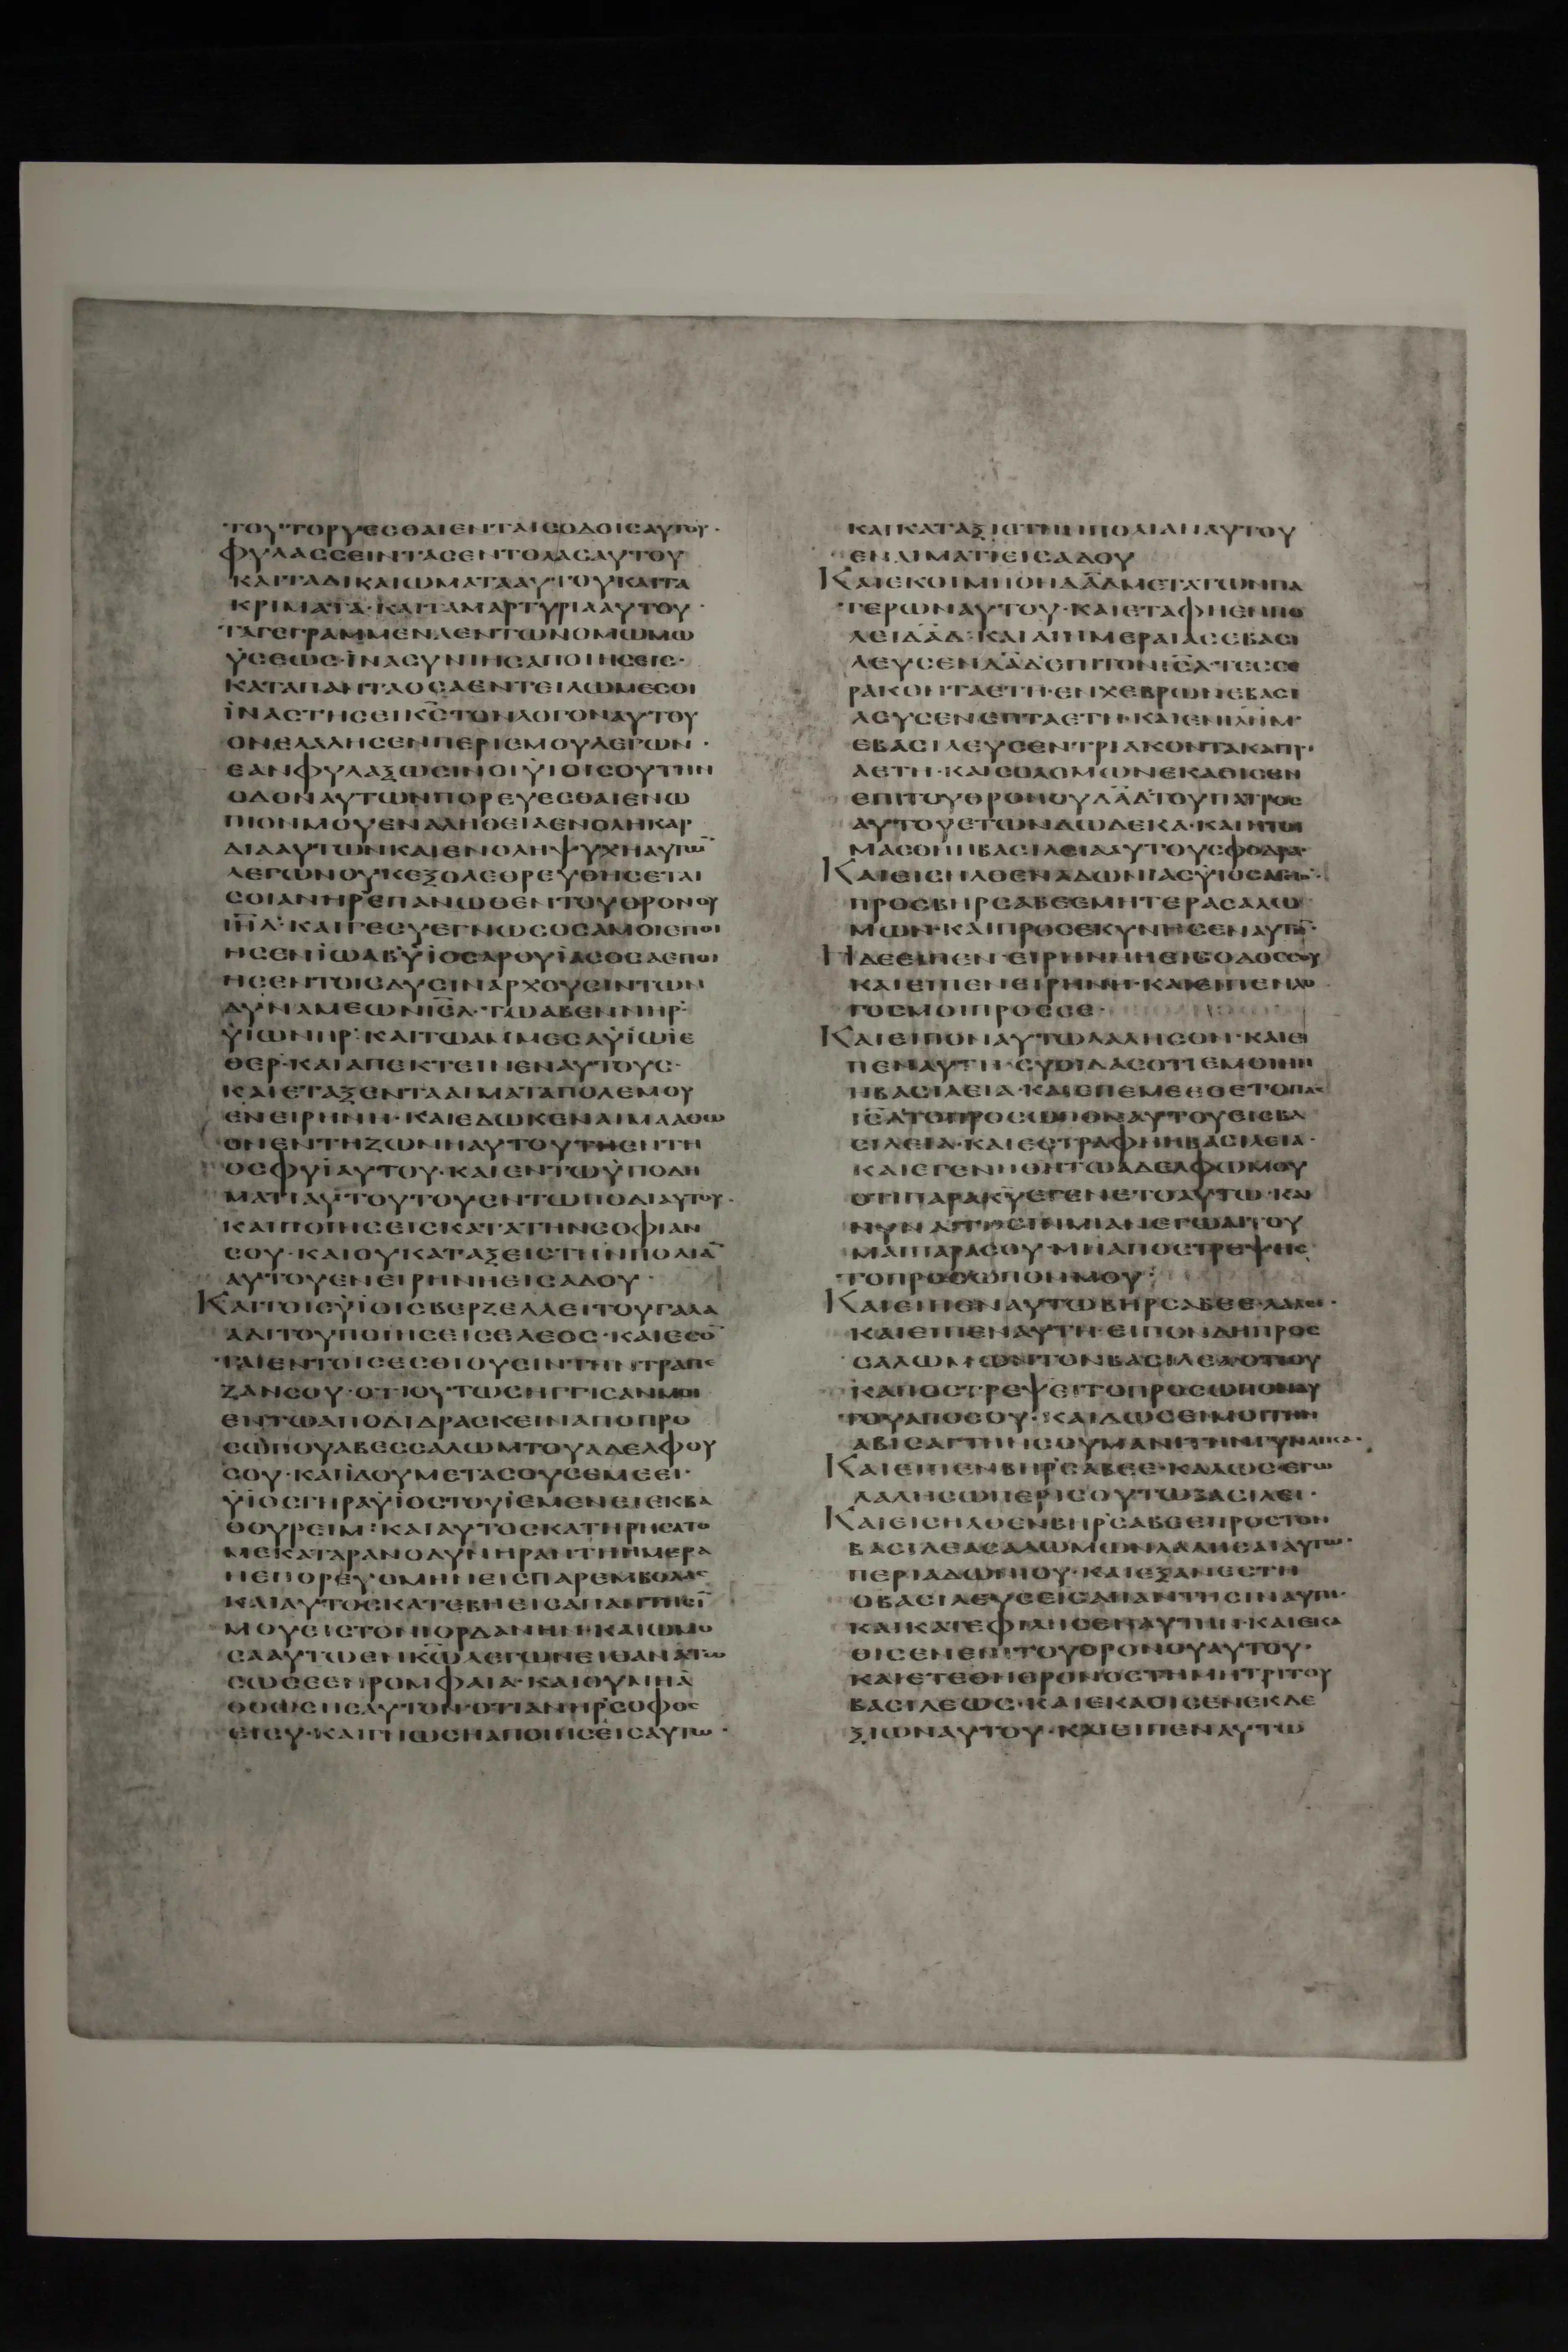 ΤΟΥΤΟΡΥΕΣΘΑΙΕΝΤΑΙΣΟΔΟΙΣΑΥΤΟΥ·
ΦΥΛΑΣΣΕΙΝΤΑΣΕΝΤΟΛΑΣΑΥΤΟΥ
ΚΑΙΤΑΔΙΚΑΙΩΜΑΤΑΑΥΤΟΥΚΑΙΤΑ
ΚΡΙΜΑΤΑ·ΚΑΙΤΑΜΑΡΤΥΡΙΑΑΥΤΟΥ·
ΤΑΓΕΓΡΑΜΜΕΝΑΕΝΤΩΝΟΜΩΜΩ
ΫΣΕΩΣ·ΪΝΑΣΥΝΙΗΣΑΠΟΙΗΣΕΙΣ·
ΚΑΤΑΠΑΝΤΑΟΣΑΕΝΤΕΙΛΩΜΕΣΟΙ
ΪΝΑΣΤΗΣΕΙΚ̅Σ̅ΤΟΝΛΟΓΟΝΑΥΤΟΥ
ΟΝΕΛΑΛΗΣΕΝΠΕΡΙΕΜΟΥΛΕΓΩΝ·
ΕΑΝΦΥΛΑΞΩΣΙΝΟΙΫΙΟΙΣΟΥΤΗΝ
ΟΔΟΝΑΥΤΩΝΠΟΡΕΥΕΣΘΑΙΕΝΩ
ΠΙΟΝΜΟΥΕΝΑΛΗΘΕΙΑΕΝΟΛΗΚΑΡ
ΔΙΑΑΥΤΩΝΚΑΙΕΝΟΛΗΨΥΧΗΑΥΤΩ̅
ΛΕΓΩΝΟΥΚΕΞΟΛΕΘΡΕΥΘΗΣΕΤΑΙ
ΣΟΙΑΝΗΡΕΠΑΝΩΘΕΝΤΟΥΘΡΟΝΟΥ
Ι̅Η̅Λ̅·ΚΑΙΓΕΣΥΕΓΝΩΣΟΣΑΜΟΙΕΠΟΙ
ΗΣΕΝΪΩΑΒΫΙΟΣΑΡΟΥΪΑΣΟΣΑΕΠΟΙ
ΗΣΕΝΤΟΙΣΔΥΣΙΝΑΡΧΟΥΣΙΝΤΩΝ
ΔΥΝΑΜΕΩΝΙ̅Σ̅Λ̅·ΤΩΑΒΕΝΝΗΡ
ΫΙΩΝΗΡ·ΚΑΙΤΩΑΜΜΕΣΑΫΙΩΪΕ
ΘΕΡ·ΚΑΙΑΠΕΚΤΕΙΝΕΝΑΥΤΟΥΣ·
ΚΑΙΕΤΑΞΕΝΤΑΑΙΜΑΤΑΠΟΛΕΜΟΥ
ΕΝΕΙΡΗΝΗ·ΚΑΙΕΔΩΚΕΝΑΙΜΑΑΘΩ
ΟΝΕΝΤΗΖΩΝΗΑΥΤΟΥΤΗΕΝΤΗ
ΟΣΦΥΪΑΥΤΟΥ·ΚΑΙΕΝΤΩΫΠΟΔΗ
ΜΑΤΙΑΥΤΟΥΤΟΥΕΝΤΩΠΟΔΙΑΥΤΟΥ·
ΚΑΙΠΟΙΗΣΕΙΣΚΑΤΑΤΗΝΣΟΦΙΑΝ
ΣΟΥ·ΚΑΙΟΥΚΑΤΑΞΕΙΣΤΗΝΠΟΛΙΑ̅
ΑΥΤΟΥΕΝΕΙΡΗΝΗΕΙΣΑΔΟΥ·
ΚΑΙΤΟΙΣΫΙΟΙΣΒΕΡΖΕΛΛΕΙΤΟΥΓΑΛΑ
ΑΔΙΤΟΥΠΟΙΗΣΕΙΣΕΛΕΟΣ·ΚΑΙΕΣΟ̅
ΤΑΙΕΝΤΟΙΣΕΣΘΙΟΥΣΙΝΤΗΝΤΡΑΠΕ
ΖΑΝΣΟΥ·ΟΤΙΟΥΤΩΣΗΓΓΙΣΑΝΜΟΙ
ΕΝΤΩΑΠΟΔΙΔΡΑΣΚΕΙΝΑΠΟΠΡΟ
ΣΩΠΟΥΑΒΕΣΣΑΛΩΜΤΟΥΑΔΕΛΦΟΥ
ΣΟΥ·ΚΑΙΙΔΟΥΜΕΤΑΣΟΥΣΕΜΕΕΙ·
ΫΙΟΣΓΗΡΑΫΙΟΣΤΟΥΪΕΜΕΝΕΙΕΚΒΑ
ΘΟΥΡΕΙΜ:ΚΑΙΑΥΤΟΣΚΑΤΗΡΗΣΑΤΟ
ΜΕΚΑΤΑΡΑΝΟΔΥΝΗΡΑΝΤΗΗΜΕΡΑ
ΗΕΠΟΡΕΥΟΜΗΝΕΙΣΠΑΡΕΜΒΟΛΑΣ
ΚΑΙΑΥΤΟΣΚΑΤΕΒΗΕΙΣΑΠΑΝΤΗΣΙ̅
ΜΟΥΕΙΣΤΟΝΙΟΡΔΑΝΗΝ·ΚΑΙΩΜΟ
ΣΑΑΥΤΩΕΝΚ̅Ω̅ΛΕΓΩΝΕΙΘΑΝΑΤΩ
ΣΩΣΕΕΝΡΟΜΦΑΙΑ·ΚΑΙΟΥΜΗΑ
ΘΟΩΣΗΣΑΥΤΟΝ·ΟΤΙΑΝΗΡΣΟΦΟΣ
ΕΙΣΥ·ΚΑΙΓΝΩΣΗΑΠΟΙΗΣΕΙΣΑΥΤΩ·
ΚΑΙΚΑΤΑΞΙΣΤΗΝΠΟΛΙΑΝΑΥΤΟΥ
ΕΝΑΙΜΑΤΙΕΙΣΑΔΟΥ
ΚΑΙΕΚΟΙΜΗΘΗΔ̅Α̅Δ̅ΜΕΤΑΤΩΝΠΑ
ΤΕΡΩΝΑΥΤΟΥ·ΚΑΙΕΤΑΦΗΕΝΠΟ
ΛΕΙΔ̅Α̅Δ̅·ΚΑΙΑΙΗΜΕΡΑΙΑΣΕΒΑΣΙ
ΛΕΥΣΕΝΔ̅Α̅Δ̅ΕΠΙΤΟΝΙ̅Σ̅Λ̅·ΤΕΣΣΕ
ΡΑΚΟΝΤΑΕΤΗ·ΕΝΧΕΒΡΩΝΕΒΑΣΙ
ΛΕΥΣΕΝΕΠΤΑΕΤΗ·ΚΑΙΕΝΙ̅Λ̅Η̅Μ̅
ΕΒΑΣΙΛΕΥΣΕΝΤΡΙΑΚΟΝΤΑΚΑΙΤΡΙ
ΑΕΤΗ·ΚΑΙΣΟΛΟΜΩΝΕΚΑΘΙΣΕΝ
ΕΠΙΤΟΥΘΡΟΝΟΥΔ̅Α̅Δ̅ΤΟΥΠΑΤΡΟΣ
ΑΥΤΟΥΕΤΩΝΔΩΔΕΚΑ·ΚΑΙΗΤΟΙ
ΜΑΣΘΗΗΒΑΣΙΛΕΙΑΑΥΤΟΥΣΦΟΔΡΑ·
ΚΑΙΕΙΣΗΛΘΕΝΑΔΩΝΙΑΣΫΙΟΣ
ΠΡΟΣΒΗΡΣΑΒΕΕΜΗΤΕΡΑΣΑΛΩ
ΜΩΝ·ΚΑΙΠΡΟΣΕΚΥΝΗΣΕΝΑΥΤΗ·
ΗΔΕΕΙΠΕΝΕΙΡΗΝΗΗΕΙΣΟΔΟΣΣΟΥ
ΚΑΙΕΙΠΕΝΕΙΡΗΝΗ·ΚΑΙΕΙΠΕΝΛΟ
ΓΟΣΜΟΙΠΡΟΣΣΕ·
ΚΑΙΕΙΠΟΝΑΥΤΩΛΑΛΗΣΟΝ·ΚΑΙΕΙ
ΠΕΝΑΥΤΗ·ΣΥΟΙΔΑΣΟΤΙΕΜΟΙΗΝ
ΗΒΑΣΙΛΕΙΑ·ΚΑΙΕΠΕΜΕΕΘΕΤΟΠΑΣ
Ι̅Σ̅Λ̅ΤΟΠΡΟΣΩΠΟΝΑΥΤΟΥΕΙΣΒΑ
ΣΙΛΕΙΑ·ΚΑΙΕΣΤΡΑΦΗΗΒΑΣΙΛΕΙΑ·
ΚΑΙΕΓΕΝΗΘΗΤΩΑΔΕΛΦΩΜΟΥ
ΟΤΙΠΑΡΑΚΥΕΓΕΝΕΤΟΑΥΤΩ·ΚΑΙ
ΝΥΝΑΙΤΗΣΙΝΜΙΑΝΕΓΩΑΙΤΟΥ
ΜΑΙΠΑΡΑΣΟΥ·ΜΗΑΠΟΣΤΡΕΨΗΣ
ΤΟΠΡΟΣΩΠΟΝΜΟΥ:
ΚΑΙΕΙΠΕΝΑΥΤΩΒΗΡΣΑΒΕΕ·ΛΑΛΕΙ·
ΚΑΙΕΙΠΕΝΑΥΤΗ·ΕΙΠΟΝΔΗΠΡΟΣ
ΣΑΛΩΜΩΝΤΟΝΒΑΣΙΛΕΑΟΤΙΟΥ
ΚΑΠΟΣΤΡΕΨΕΙΤΟΠΡΟΣΩΠΟΝΑΥ
ΤΟΥΑΠΟΣΟΥ·ΚΑΙΔΩΣΕΙΜΟΙΤΗΝ
ΑΒΙΣΑΓΤΗΝΣΟΥΜΑΝΙΤΗΝΓΥΝΑΙΚΑ·
ΚΑΙΕΙΠΕΝΒΗΡΣΑΒΕΕ·ΚΑΛΩΣΕΓΩ
ΛΑΛΗΣΩΠΕΡΙΣΟΥΤΩΒΑΣΙΛΕΙ·
ΚΑΙΕΙΣΗΛΘΕΝΒΗΡΣΑΒΕΕΠΡΟΣΤΟΝ
ΒΑΣΙΛΕΑΣΑΛΩΜΩΝΛΑΛΗΣΑΙΑΥΤΩ·
ΠΕΡΙΑΔΩΝΙΟΥ·ΚΑΙΕΞΑΝΕΣΤΗ
ΟΒΑΣΙΛΕΥΣΕΙΣΑΠΑΝΤΗΣΙΝΑΥΤΗ·
ΚΑΙΚΑΤΕΦΙΛΗΣΕΝΑΥΤΗΝ·ΚΑΙΕΚΑ
ΘΙΣΕΝΕΠΙΤΟΥΘΡΟΝΟΥΑΥΤΟΥ·
ΚΑΙΕΤΕΘΗΘΡΟΝΟΣΤΗΜΗΤΡΙΤΟΥ
ΒΑΣΙΛΕΩΣ·ΚΑΙΕΚΑΘΙΣΕΝΕΚΔΕ
ΞΙΩΝΑΥΤΟΥ·ΚΑΙΕΙΠΕΝΑΥΤΩ